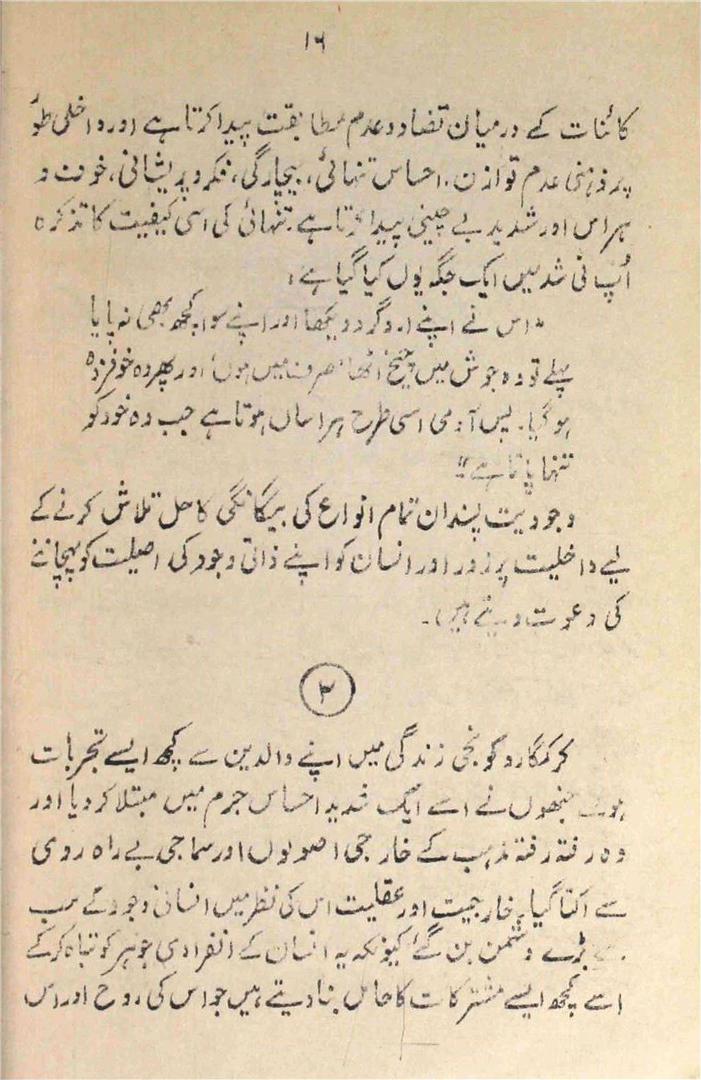 ۱۶
کائنات کے درمیان تضاد و عدم مطابقت پیدا کرتا ہے اور داخلی طور
پر ذہنی عدم توازن، احساس تنہائی، بیچارگی، فکر و پریشانی، خوف و
ہراس اور شدید بے چینی پیدا کرتا ہے۔ تنہائی کی اسی کیفیت کا تذکرہ
اُپ نی شد میں ایک جگہ یوں کیا گیا ہے:
"اس نے اپنے اردگرد دیکھا اور اپنے سوا کچھ بھی نہ پایا
پہلے تو وہ جوش میں چیخ اٹھا 'صرف میں ہوں' اور پھر وہ خوفزدہ
ہو گیا۔ پس آدمی اسی طرح ہراساں ہوتا ہے جب وہ خود کو
تنہا پاتا ہے"
وجودیت پسند ان تمام انواع کی بیگانگی کا حل تلاش کرنے کے
لیے داخلیت پر زور اور انسان کو اپنے ذاتی وجود کی اصلیت کو پہچاننے
کی دعوت دیتے ہیں۔
۳
کرکیگارد کو نجی زندگی میں اپنے والدین سے کچھ ایسے تجربات
ہوئے جنھوں نے اسے ایک شدید احساس جرم میں مبتلا کر دیا اور
وہ رفتہ رفتہ مذہب کے خارجی اصولوں اور سماجی بے راہ روی
سے اکتا گیا۔ خارجیت اور عقلیت اس کی نظر میں انسانی وجود کے سب
سے بڑے دشمن بن گئے کیونکہ یہ انسان کے انفرادی جوہر کو تباہ کر کے
اسے کچھ ایسے مشترکات کا حامل بنا دیتے ہیں جو اس کی روح اور اس